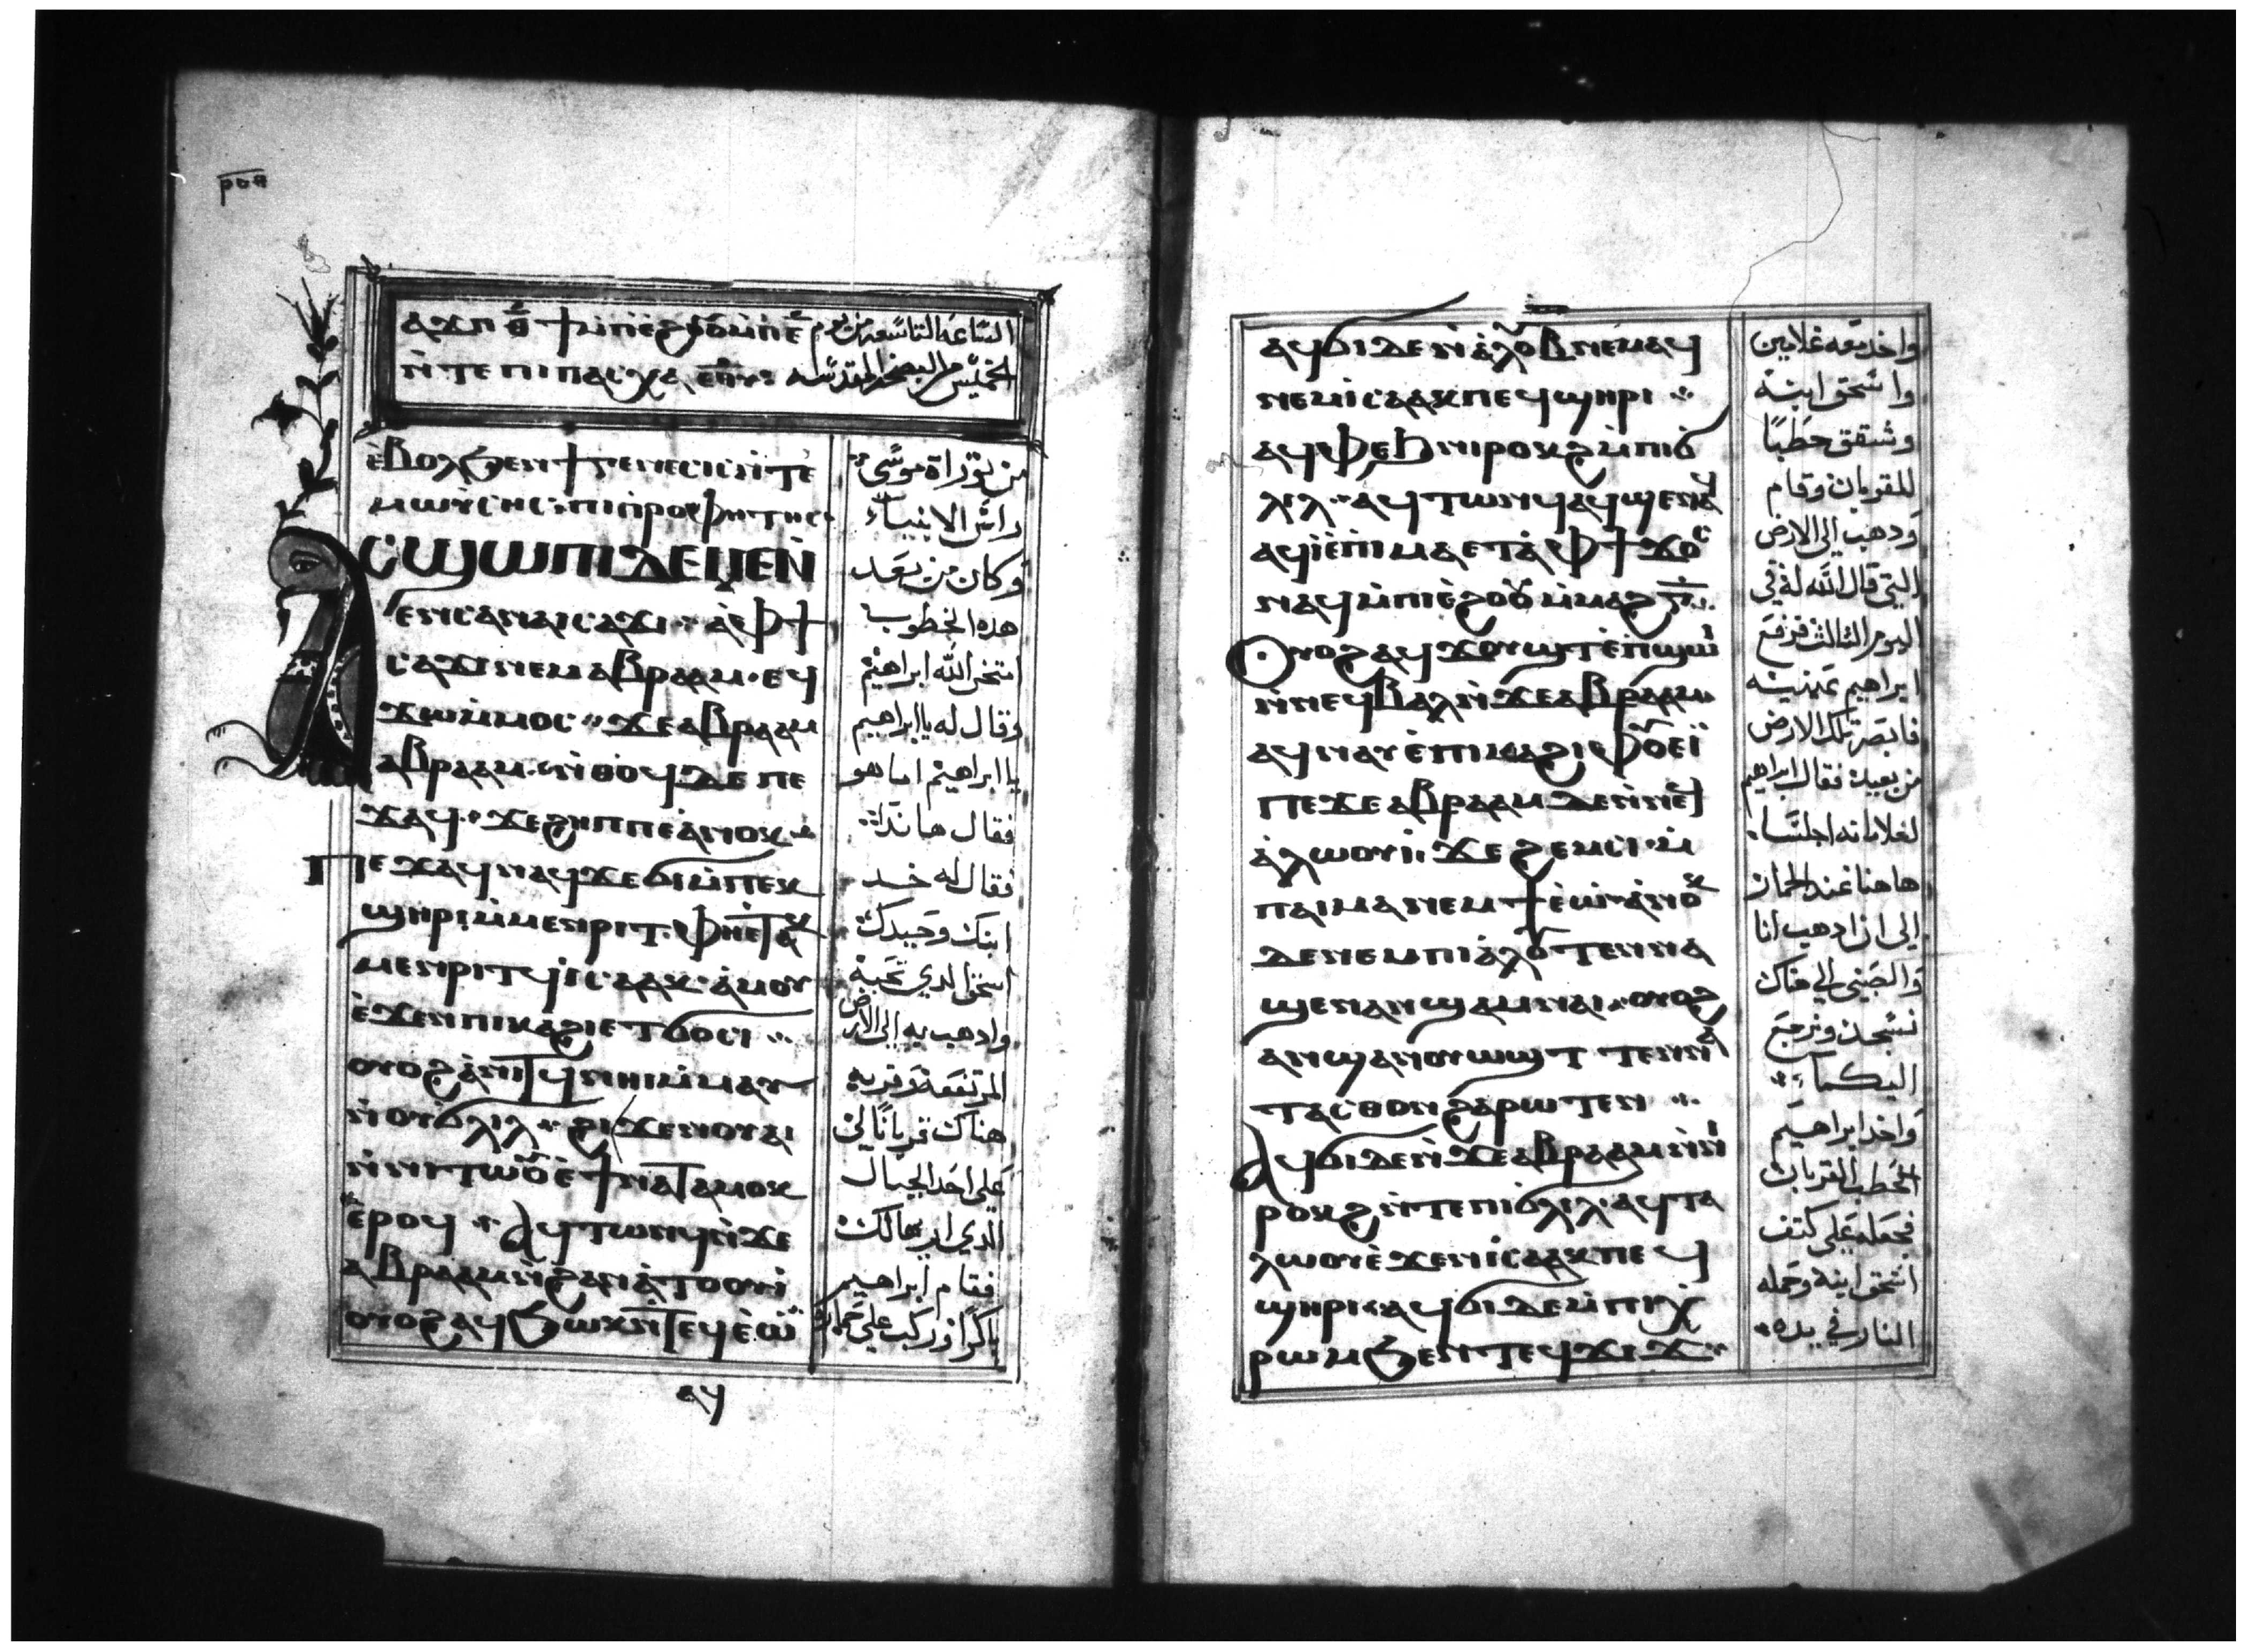 ⲣⲟⲁ
ⲁϫⲡ ⲑ̄
ⲛ̀ⲧⲉ ⲡⲓⲡⲁⲥⲭⲁ ⲉⲑⲩ
الساعه التاسعه من يوم
الخميس من البصخه المقدسه
ⲉ̀ⲃⲟⲗϧⲉⲛϯⲅⲉⲛⲉⲥⲓⲥⲛ̀ⲧⲉ
ⲙⲱⲩ̀ⲥⲏⲥ ⲡⲓⲡ̀ⲣⲟⲫⲏⲧⲏⲥ
ⲁⲥϣⲱⲡⲓⲇⲉⲙⲉⲛ
ⲉⲛⲥⲁⲛⲁⲓⲥⲁϫⲓ ⲁ̀ⲫϯ
ⲥⲁϫⲓⲛⲉⲙⲁⲃⲣⲁⲁⲙ ⲉϥ
ϫⲱⲙ̀ⲙⲟⲥ ϫⲉⲁⲃⲣⲁⲁⲙ
ⲁⲃⲣⲁⲁⲙ ⲛ̀ⲑⲟϥⲇⲉ ⲡⲉ
ϫⲁϥ ϫⲉϩⲏⲡⲡⲉⲁ̀ⲛⲟⲕ
ⲡⲉϫⲁϥⲛⲁϥϫⲉϭⲓⲙ̀ⲡⲉⲕ
ϣⲏⲣⲓⲙ̀ⲙⲉⲛⲣⲓⲧ ⲫⲏⲉⲧⲁⲕ
ⲙⲉⲛⲣⲓⲧϥⲓⲥⲁⲁⲕ ⲁ̀ⲙⲟⲩ
ⲉ̀ϫⲉⲛⲡⲓⲕⲁϩⲓⲉⲧϭⲟⲥⲓ
ⲟⲩⲟϩⲁ̀ⲛⲓⲧϥⲛⲏⲓⲙ̀ⲙⲁⲩ
ⲛ̀ⲟⲩϭⲗⲓⲗ ϩⲓϫⲉⲛⲟⲩⲁⲓ
ⲛ̀ⲛⲓⲧⲱⲟⲩⲉ̀ϯⲛⲁⲧⲁⲙⲟⲕ
ⲉ̀ⲣⲟϥ ⲁϥⲧⲱⲛϥⲛ̀ϫⲉ
ⲁⲃⲣⲁⲁⲙⲛ̀ϩⲁⲛⲁ̀ⲧⲟⲟⲩⲓ
ⲟⲩⲟϩⲁϥϧⲱⲕⲛ̀ⲧⲉϥⲉ̀ⲱ̄
ⲁϥ
من توراة موسى
راس الانبياء
وكان من بعد
هذه الخطوب
امتحن الله ابراهيم
وقال له يا ابراهيم
يا ابراهيم اما هو
فقال هانذا
فقال له خد
ابنك وحيدك
اسحق الدي تحبه
وادهب به الى الارض
المرتفعه وقربه
هناك قربانا لي
على احد الجبال
الدي اريها لك
فقام ابراهيم
باكرا وركب على حماره
ⲁϥϭⲓⲇⲉⲛ̀ⲁ̀ⲗⲟⲩⲃⲛⲉⲙⲁϥ
ⲛⲉⲙⲓⲥⲁⲁⲕⲡⲉϥϣⲏⲣⲓ
ⲁϥⲫⲉϧⲛⲓⲣⲟⲕϩⲙ̀ⲡⲓϭ
ⲗⲓⲗ ⲁϥⲧⲱⲛϥⲁϥϣⲉⲛⲁϥ
ⲁϥⲓ̀ⲉ̀ⲡⲓⲙⲁⲉⲧⲁ̀ⲫϯϫⲟⲥ
ⲛⲁϥⲙ̀ⲡⲓⲉ̀ϩⲟⲟⲩⲙ̀ⲙⲁϩⲅ̄
ⲟⲩⲟϩⲁϥϫⲟⲩϣⲧⲉ̀ⲡϣⲱⲓ
ⲛ̀ⲛⲉϥⲃⲁⲗⲛ̀ϫⲉⲁⲃⲣⲁⲁⲙ
ⲁϥⲛⲁⲩⲉ̀ⲡⲓⲙⲁϩⲓⲫⲟⲩⲉⲓ
ⲡⲉϫⲉⲁⲃⲣⲁⲁⲙⲇⲉⲛ̀ⲛⲉϥ
ⲁ̀ⲗⲱⲟⲩⲓ ϫⲉϩⲉⲙⲥⲓ ⲙ̀
ⲡⲁⲓⲙⲁⲛⲉⲙϯⲉ̀ⲱ ⲁ̀ⲛⲟⲕ
ⲇⲉⲛⲉⲙⲡⲓⲁ̀ⲗⲟⲩⲧⲉⲛⲛⲁ
ϣⲉⲛⲁⲛϣⲁⲙⲛⲁⲓ ⲟⲩⲟϩ
ⲁⲛϣⲁⲛⲟⲩⲱϣⲧ ⲧⲉⲛⲛⲁ
ⲧⲁⲥⲑⲟⲛϩⲁⲣⲱⲧⲉⲛ
ⲁϥϭⲓⲇⲉⲛ̀ϫⲉⲁⲃⲣⲁⲁⲙⲛ̀ⲛⲓ
ⲣⲟⲕϩⲛ̀ⲧⲉⲡⲓϭⲗⲓⲗ ⲁϥⲧⲁ
ⲗⲱⲟⲩⲉ̀ϫⲉⲛⲓⲥⲁⲁⲕⲡⲉϥ
ϣⲏⲣⲓ ⲁϥϭⲓⲇⲉⲙ̀ⲡⲓⲭ
ⲣⲱⲙϧⲉⲛⲧⲉϥϫⲓϫ
واخد معه غلامين
واسحق ابنه
وشقق حطبا
للقربان وقام
ودهب الى الارض
التي قال الله له في
اليوم الثالث فرفع
ابراهيم عينيه
فابصر تلك الارض
من بعيد فقال ابراهيم
لغلامانه اجلسا
هاهنا عند الحمار
الى ان ادهب انا
والصبي الى هناك
نسجد ونرجع
اليكما
واخد ابراهيم
الحطب القربان
فجعله على كتف
اسحق ابنه وحمله
النار في يده